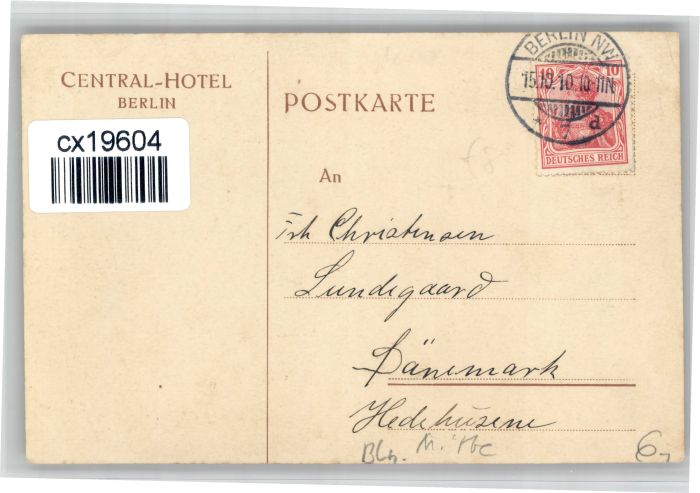 CENTRAL-HOTEL
BERLIN
cx19604
POSTKARTE
BERLIN NW
15.10.10.10-11N
7 a
10 10
DEUTSCHES REICH
An
Christensen
Lundegaard
Dänemark
Hedehusene
6,